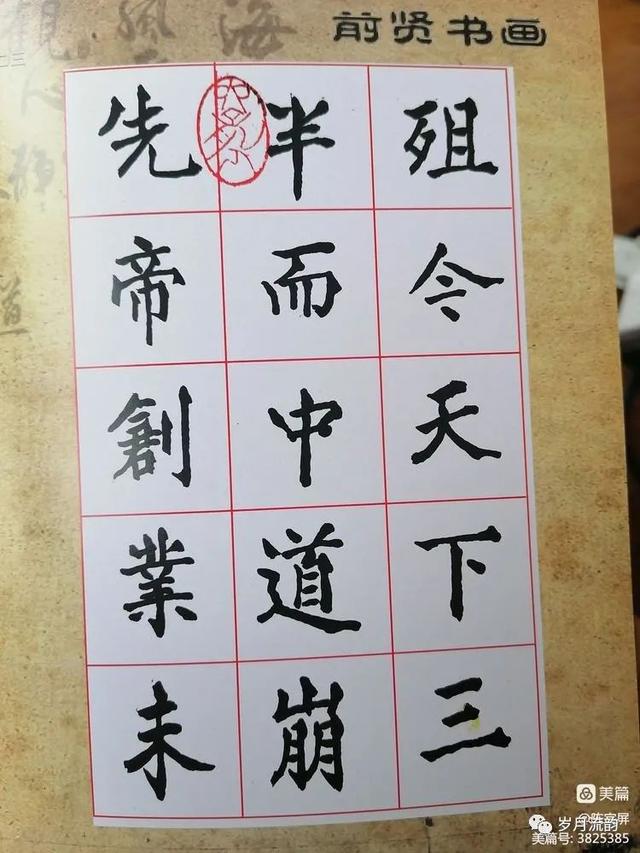 前贤书画
先帝創業未
半而中道崩
殂今天下三
美篇
@陈宝屏
岁月流韵
美篇号: 3825385